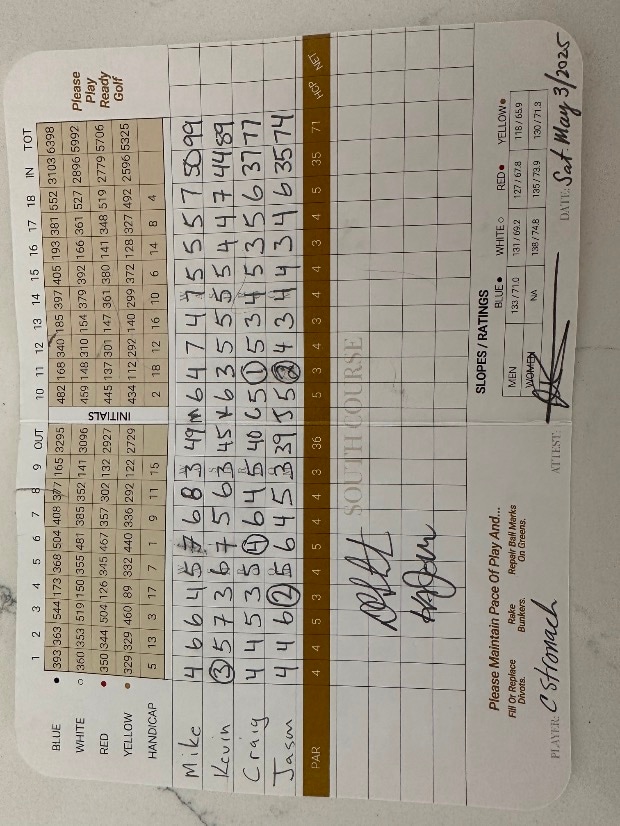 1 2 3 4 5 6 7 8 9 OUT 10 11 12 13 14 15 16 17 18 IN TOT
BLUE 393 363 544 173 368 504 408 377 165 3295 482 168 340 185 397 405 193 381 552 3103 6398
WHITE 360 353 519 150 355 481 385 352 141 3096 459 148 310 154 379 392 166 361 527 2896 5992
RED 350 344 504 126 345 467 357 302 132 2927 445 137 301 147 361 380 141 348 519 2779 5706
YELLOW 329 329 460 89 332 440 336 292 122 2729 434 112 292 140 299 372 128 327 492 2596 5325
HANDICAP 5 13 3 17 7 1 9 11 15 2 18 12 16 10 6 14 8 4
INITIALS
Please
Play
Ready
Golf
Mike 4 6 6 4 5 7 6 8 3 49 M 6 4 7 4 7 5 5 5 7 50 99
Kevin 3 5 7 3 6 7 5 6 3 45 K 6 3 5 5 5 5 4 4 7 44 89
Craig 4 4 5 3 5 4 6 4 5 40 C 5 1 5 3 4 5 3 5 6 37 77
Jason 4 4 6 2 5 6 4 5 3 39 J 5 2 4 3 4 4 3 4 6 35 74
PAR 4 4 5 3 4 5 4 4 3 36 5 3 4 3 4 4 3 4 5 35 71 HCP NET
SOUTH COURSE
Please Maintain Pace Of Play And...
Fill Or Replace Divots.
Rake Bunkers.
Repair Ball Marks On Greens.
SLOPES / RATINGS
BLUE WHITE RED YELLOW
MEN 133/71.0 131/69.2 127/67.8 118/65.9
WOMEN NA 138/74.8 135/73.9 130/71.3
PLAYER: C Stronach ATTEST: DATE: Sat. May 3/2025